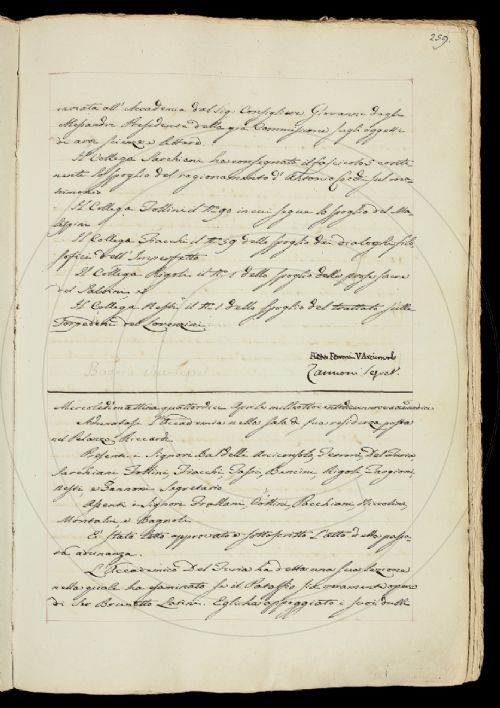 259.
inviata all' Accademia dal Sig. Consigliere Giovanni degli
Alessandri Presidente della già Commissione sugli oggetti
di arte scienze e lettere.
Il Collega Sarchiani ha consegnato il fascicolo 5 conte
nente lo spoglio del ragionamento d' Antonio sul ma
trimonio
Il Collega Follini il N.º 90 in cui segue lo spoglio del Ma
lispini
Il Collega Fiacchi il N.º 39 dello spoglio dei dialoghi filo
sofici dell' Imperfetto
Il Collega Rigoli il N.º 1 dello spoglio delle prose sacre
del Salvini
Il Collega Nesti il N.º 1 dello spoglio del trattato sulle
Torpedini del Lorenzini
Ferroni Vicearciconsolo
Zannoni Segret.
Mercoledì mattina quattordici Aprile
Adunatasi l' Accademia nella sala di sua residenza posta
nel Palazzo Riccardi
Presenti i Signori Baldelli Arciconsolo, Ferroni, Del Furia
Sarchiani Follini, Fiacchi Bencini, Rigoli Targioni,
Nesti e Zannoni Segretario
Assenti i Signori Frullani, Collini, Pacchiani Niccolini,
Montalvi e Bagnoli
È stato letto approvato e sottoscritto l' atto della passa-
ta adunanza.
L' Accademico Del Furia ha detta una sua Lezione
nella quale ha esaminato se il Pataffio sia veramente opera
di Ser Brunetto Latini. Egli ha appoggiato i suoi dubbi